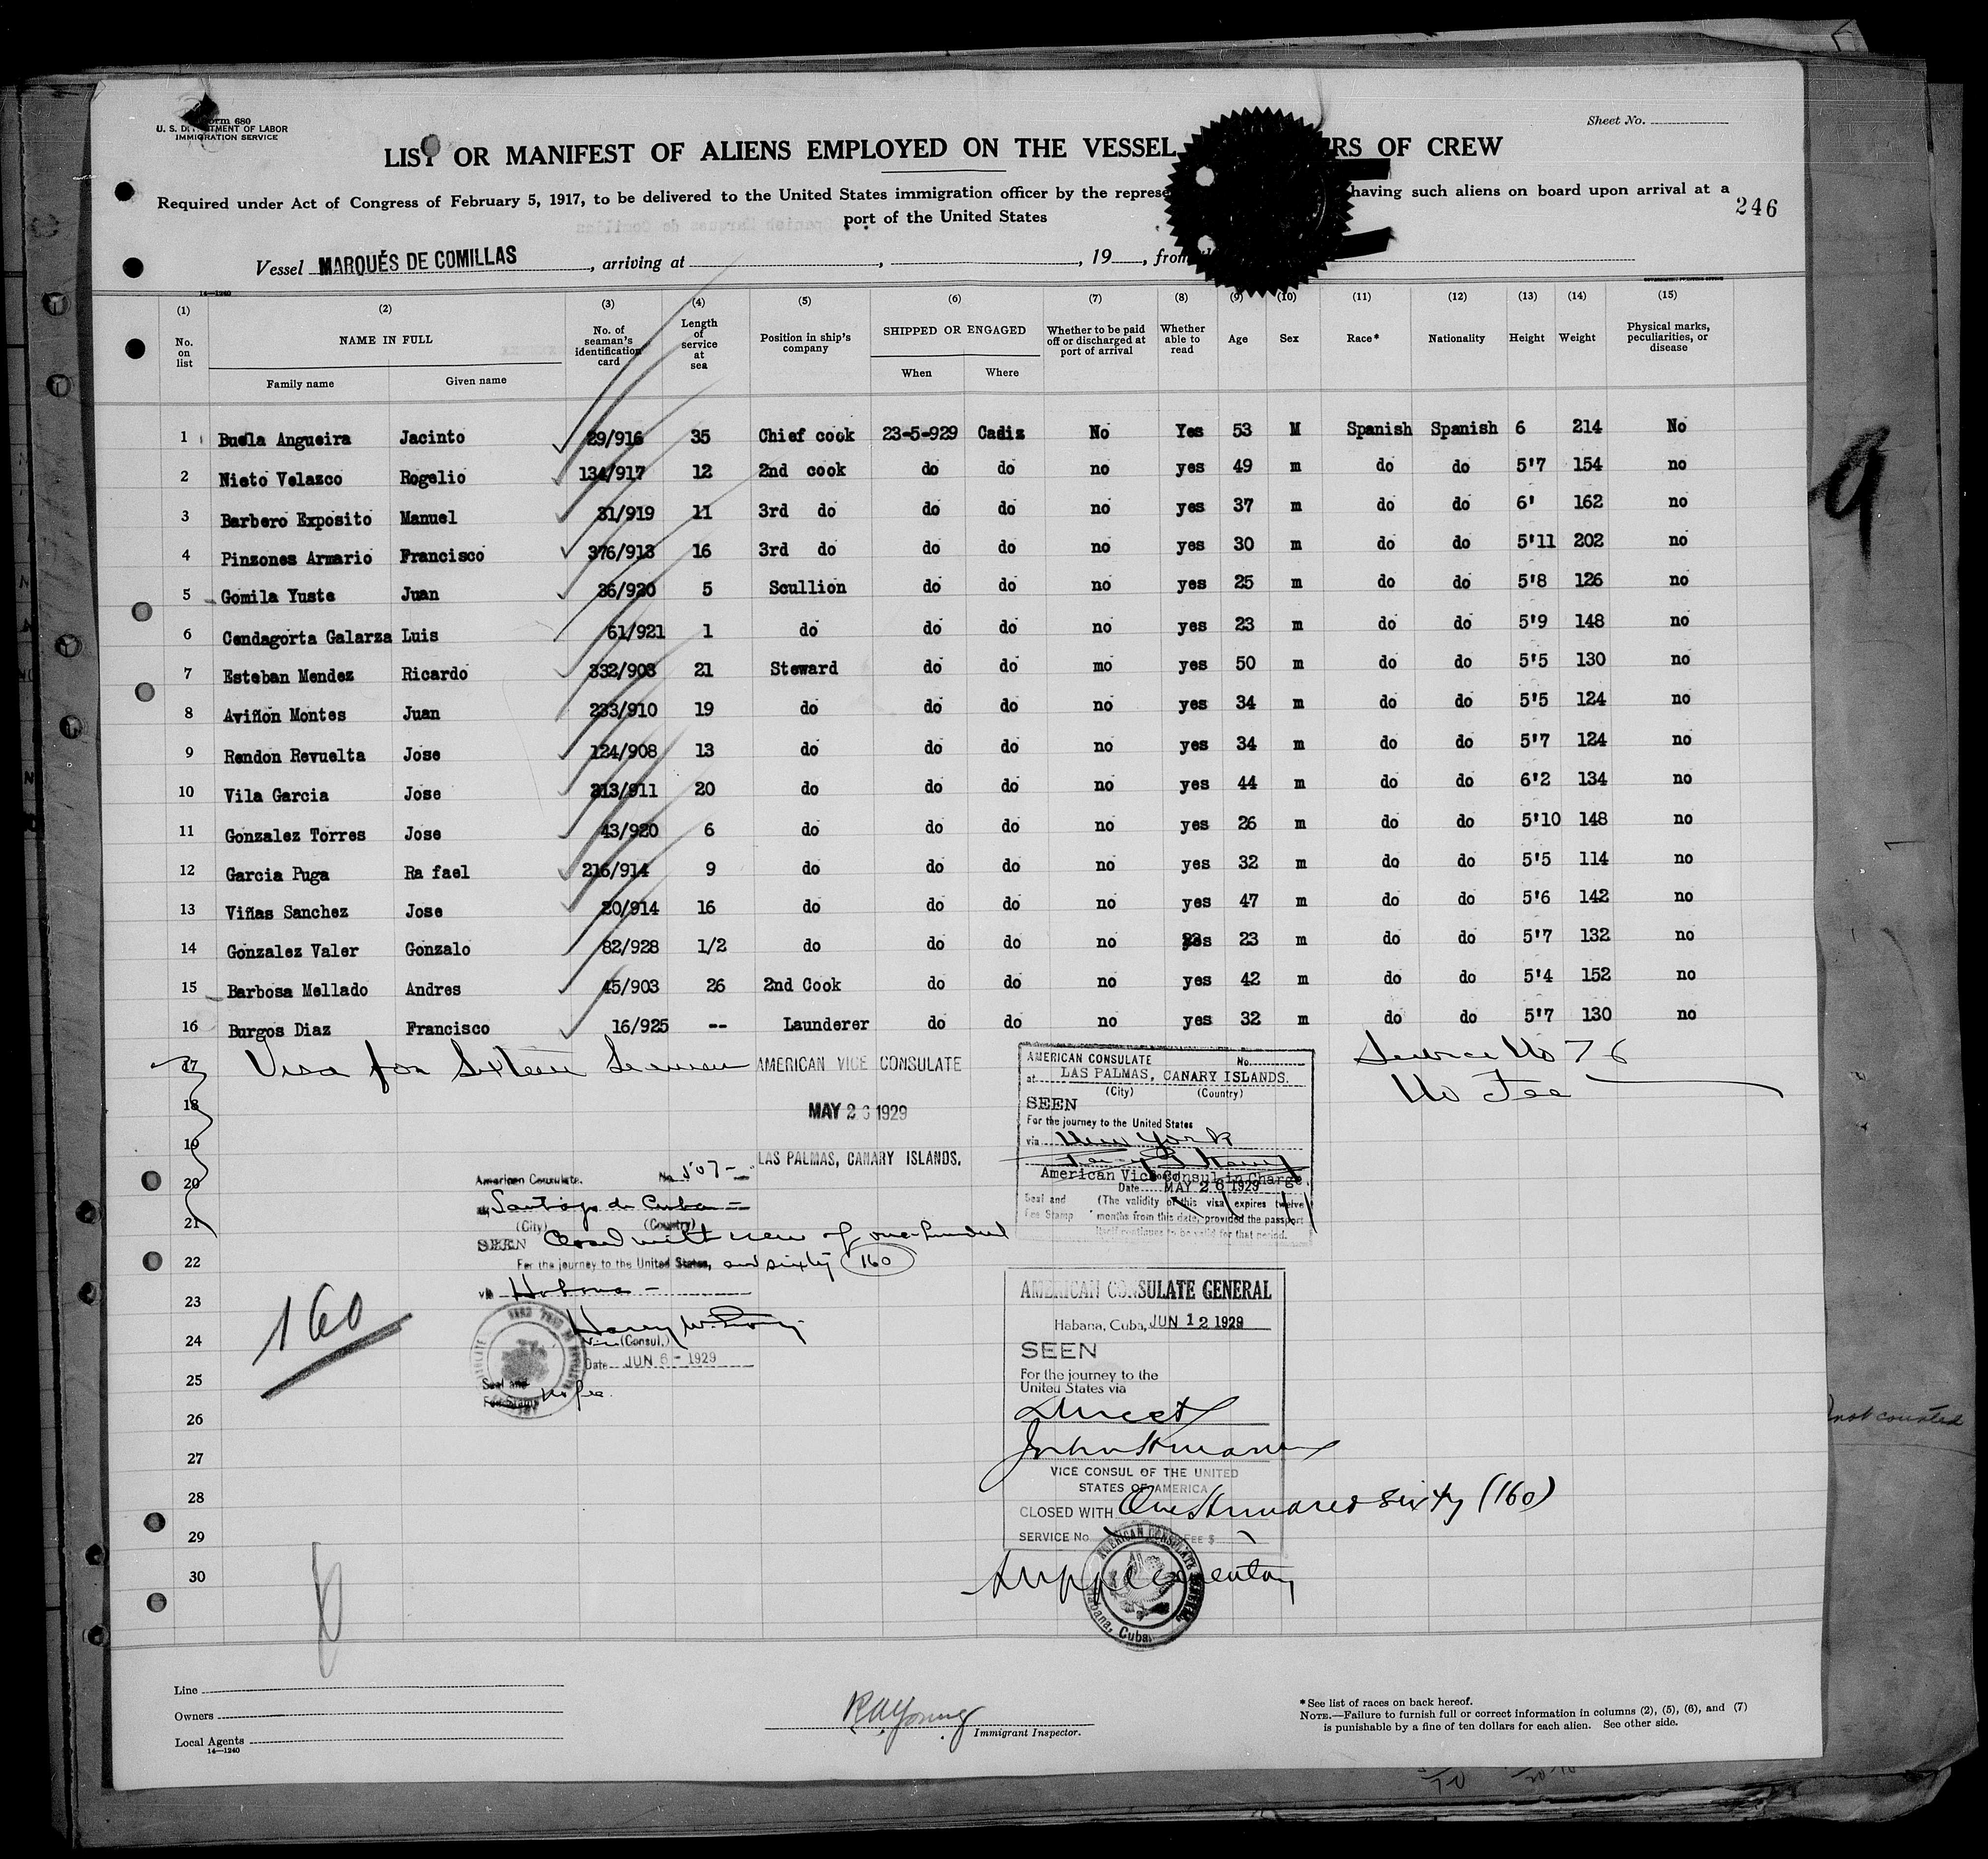 Form 680
U. S. DEPARTMENT OF LABOR
IMMIGRATION SERVICE
Sheet No.
LIST OR MANIFEST OF ALIENS EMPLOYED ON THE VESSEL RS OF CREW
Required under Act of Congress of February 5, 1917, to be delivered to the United States immigration officer by the represe having such aliens on board upon arrival at a
port of the United States
246
Vessel MARQUÉS DE COMILLAS, arriving at , , 19 , from
14—1240
(1) (2) (3) (4) (5) (6) (7) (8) (9) (10) (11) (12) (13) (14) (15)
No. on list NAME IN FULL Family name Given name No. of seaman's identification card Length of service at sea Position in ship's company SHIPPED OR ENGAGED When Where Whether to be paid off or discharged at port of arrival Whether able to read Age Sex Race* Nationality Height Weight Physical marks, peculiarities, or disease
1 Buela Angueira Jacinto 29/916 35 Chief cook 23-5-929 Cadiz No Yes 53 M Spanish Spanish 6 214 No
2 Nieto Velazco Rogelio 134/917 12 2nd cook do do no yes 49 m do do 5'7 154 no
3 Barbero Exposito Manuel 31/919 11 3rd do do do no yes 37 m do do 6' 162 no
4 Pinzones Armario Francisco 376/913 16 3rd do do do no yes 30 m do do 5'11 202 no
5 Gomila Yuste Juan 36/920 5 Scullion do do no yes 25 m do do 5'8 126 no
6 Cendagorta Galarza Luis 61/921 1 do do do no yes 23 m do do 5'9 148 no
7 Esteban Mendez Ricardo 332/908 21 Steward do do mo yes 50 m do do 5'5 130 no
8 Aviñon Montes Juan 233/910 19 do do do no yes 34 m do do 5'5 124 no
9 Rendon Revuelta Jose 124/908 13 do do do no yes 34 m do do 5'7 124 no
10 Vila Garcia Jose 313/911 20 do do do no yes 44 m do do 6'2 134 no
11 Gonzalez Torres Jose 43/920 6 do do do no yes 26 m do do 5'10 148 no
12 Garcia Puga Ra fael 216/914 9 do do do no yes 32 m do do 5'5 114 no
13 Viñas Sanchez Jose 20/914 16 do do do no yes 47 m do do 5'6 142 no
14 Gonzalez Valer Gonzalo 82/928 1/2 do do do no yes 23 m do do 5'7 132 no
15 Barbosa Mellado Andres 45/903 26 2nd Cook do do no yes 42 m do do 5'4 152 no
16 Burgos Diaz Francisco 16/925 -- Launderer do do no yes 32 m do do 5'7 130 no
17 Visa for Sixteen Seamen
18
19
20
21
22
23
24
25
26
27
28
29
30
AMERICAN VICE CONSULATE
MAY 26 1929
LAS PALMAS, CANARY ISLANDS.
AMERICAN CONSULATE No.
at LAS PALMAS, CANARY ISLANDS.
(City) (Country)
SEEN
For the journey to the United States
via New York
American Vice Consul in Charge.
Date MAY 26 1929
Seal and Fee Stamp (The validity of this visa expires twelve
months from this date, provided the passport
itself continues to be valid for that period.
Service No 76
No Fee
American Consulate. No 507-
at Santiago de Cuba
(City) (Country)
SEEN Closed with crew of one hundred
For the journey to the United States, and sixty 160
via Habana
Vice (Consul.)
Date JUN 6 - 1929
Seal and
Fee Stamp No fee.
160
AMERICAN CONSULATE GENERAL
Habana, Cuba, JUN 12 1929
SEEN
For the journey to the
United States via
direct
VICE CONSUL OF THE UNITED
STATES OF AMERICA
CLOSED WITH One Hundred sixty (160)
SERVICE No. FEE $
AMERICAN CONSULATE GENERAL
Habana, Cuba.
Supplementary
9
not counted
Line
Owners
Local Agents
14—1240
R A Young
Immigrant Inspector.
*See list of races on back hereof.
NOTE.—Failure to furnish full or correct information in columns (2), (5), (6), and (7)
is punishable by a fine of ten dollars for each alien. See other side.